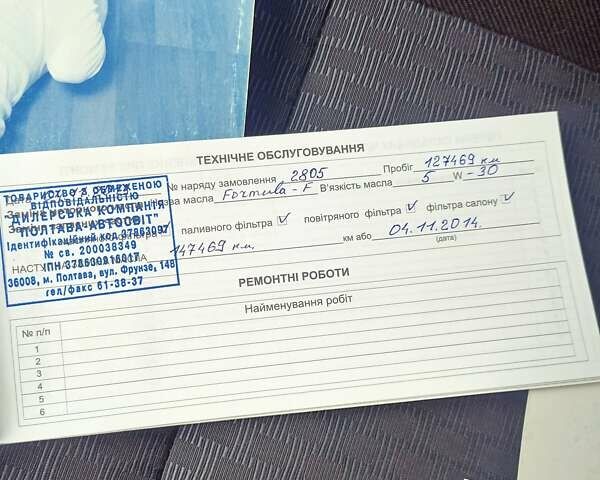 ТЕХНІЧНЕ ОБСЛУГОВУВАННЯ
№ наряду замовлення 2805 Пробіг 127469 км
назва масла Formula-F В'язкість масла 5 W -30
паливного фільтра ✓ повітряного фільтра ✓ фільтра салону ✓
147469 км. км або 04.11.2014.
(дата)
ТОВАРИСТВО З ОБМЕЖЕНОЮ
ВІДПОВІДАЛЬНІСТЮ
"ДИЛЕРСЬКА КОМПАНІЯ
"ПОЛТАВА-АВТОСВІТ"
Ідентифікаційний код 37863097
№ св. 200038349
ІПН 378630916017
36008, м. Полтава, вул. Фрунзе, 148
тел/факс 61-38-37
РЕМОНТНІ РОБОТИ
№ п/п Найменування робіт
1
2
3
4
5
6